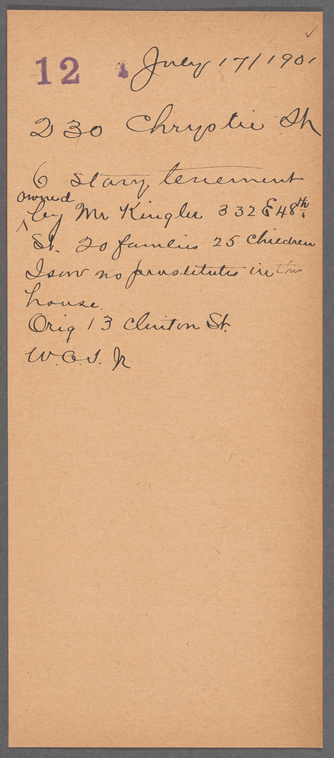 12 July 17/1901
230 Chrystie St
6 story tenement
owned
by Mr Kingler 332 E 48th
St. 20 families 25 children
I saw no prostitutes in this
house.
Orig 13 Clinton St.
Jr